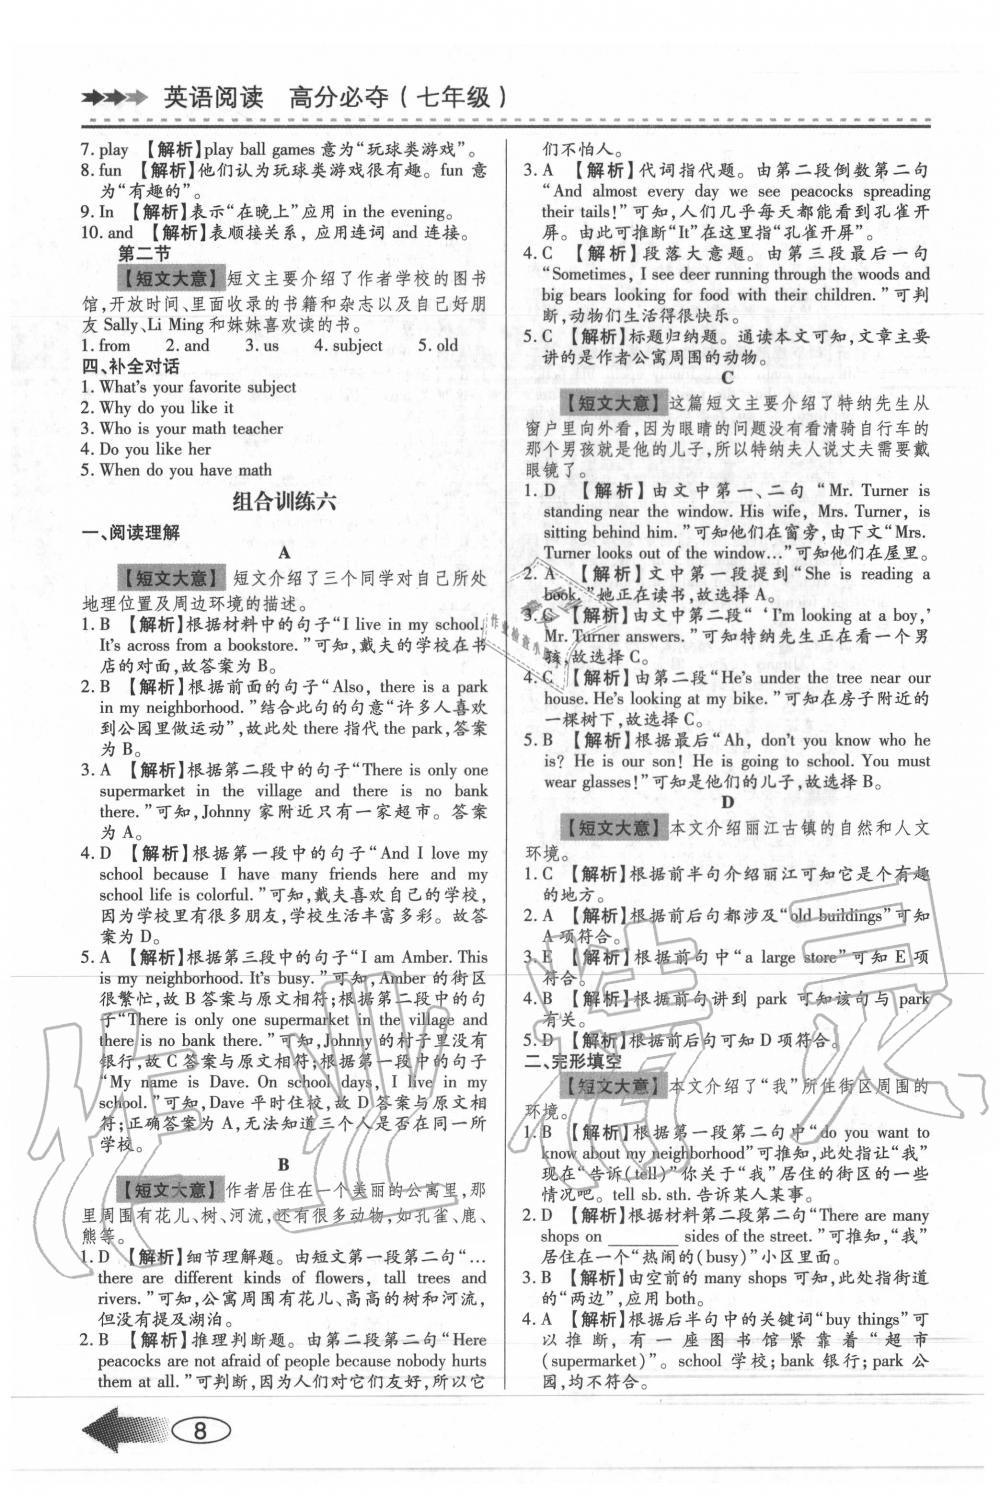 英语阅读 高分必夺(七年级)
7. play 【解析】play ball games 意为“玩球类游戏”。
8. fun 【解析】他们认为玩球类游戏很有趣。fun 意
为“有趣的”。
9. In 【解析】表示“在晚上”应用 in the evening。
10. and 【解析】表顺接关系，应用连词 and 连接。
第二节
【短文大意】短文主要介绍了作者学校的图书
馆,开放时间、里面收录的书籍和杂志以及自己好朋
友 Sally、Li Ming 和妹妹喜欢读的书。
1. from 2. and 3. us 4. subject 5. old
四、补全对话
1. What's your favorite subject
2. Why do you like it
3. Who is your math teacher
4. Do you like her
5. When do you have math
组合训练六
一、阅读理解
A
【短文大意】 短文介绍了三个同学对自己所处
地理位置及周边环境的描述。
1. B 【解析】根据材料中的句子“I live in my school.
It's across from a bookstore.”可知,戴夫的学校在书
店的对面,故答案为 B。
2. B 【解析】根据前面的句子“Also, there is a park
in my neighborhood.”结合此句的句意“许多人喜欢
到公园里做运动”,故此处 there 指代 the park,答案
为 B。
3. A 【解析】根据第二段中的句子“There is only one
supermarket in the village and there is no bank
there.”可知, Johnny 家附近只有一家超市。答案
为 A。
4. D 【解析】根据第一段中的句子“And I love my
school because I have many friends here and my
school life is colorful.”可知,戴夫喜欢自己的学校,
因为学校里有很多朋友,学校生活丰富多彩。故答
案为 D。
5. A 【解析】根据第三段中的句子“I am Amber. This
is my neighborhood. It's busy.”可知, Amber 的街区
很繁忙,故 B 答案与原文相符;根据第二段中的句
子“There is only one supermarket in the village and
there is no bank there.”可知,Johnny 的村子里没有
银行,故 C 答案与原文相符;根据第一段中的句子
“My name is Dave. On school days, I live in my
school.”可知, Dave 平时住校,故 D 答案与原文相
符;正确答案为 A,无法知道三个人是否在同一所
学校。
B
【短文大意】作者居住在一个美丽的公寓里,那
里周围有花儿、树、河流,还有很多动物,如孔雀、鹿、
熊等。
1. D 【解析】细节理解题。由短文第一段第二句“…
there are different kinds of flowers, tall trees and
rivers.”可知,公寓周围有花儿、高高的树和河流,
但没有提及湖泊。
2. B 【解析】推理判断题。由第二段第二句“Here
peacocks are not afraid of people because nobody hurts
them at all.”可判断,因为人们对它们友好,所以它
们不怕人。
3. A 【解析】代词指代题。由第二段倒数第二句
“And almost every day we see peacocks spreading
their tails!”可知,人们几乎每天都能看到孔雀开
屏。由此可推断“It”在这里指“孔雀开屏”。
4. C 【解析】段落大意题。由第三段最后一句
“Sometimes, I see deer running through the woods and
big bears looking for food with their children.”可判
断,动物们生活得很快乐。
5. C 【解析】标题归纳题。通读本文可知,文章主要
讲的是作者公寓周围的动物。
C
【短文大意】这篇短文主要介绍了特纳先生从
窗户里向外看,因为眼睛的问题没有看清骑自行车的
的那个男孩就是他的儿子,所以特纳夫人说丈夫需要戴
眼镜了。
1. D 【解析】由文中第一、二句“Mr. Turner is
standing near the window. His wife, Mrs. Turner, is
sitting behind him.”可知他们在窗旁,由下文“Mrs.
Turner looks out of the window…”可知他们在屋里。
2. A 【解析】文中第一段提到“She is reading a
book.”她正在读书,故选择 A。
3. C 【解析】由文中第二段“‘I'm looking at a boy,’
Mr. Turner answers.”可知特纳先生正在看一个男
孩,故选择 C。
4. C 【解析】由第二段“He's under the tree near our
house. He's looking at my bike.”可知在房子附近的
一棵树下,故选择 C。
5. B 【解析】根据最后“Ah, don't you know who he
is? He is our son! He is going to school. You must
wear glasses!”可知是他们的儿子,故选择 B。
D
【短文大意】本文介绍丽江古镇的自然和人文
环境。
1. C 【解析】根据前半句介绍丽江可知它是个有趣
的地方。
2. A 【解析】根据前后句都涉及“old buildings”可知
A 项符合。
3. E 【解析】根据前句中“a large store”可知 E 项
符合。
4. B 【解析】根据前句讲到 park 可知该句与 park
有关。
5. D 【解析】根据前后句可知 D 项符合。
二、完形填空
【短文大意】本文介绍了“我”所住街区周围的
环境。
1. B 【解析】根据第一段第二句中“do you want to
know about my neighborhood”可推知,此处指让“我”
现在“告诉(tell)”你关于“我”居住的街区的一些
情况吧。tell sb. sth. 告诉某人某事。
2. D 【解析】根据材料第二段第二句“There are many
shops on ______ sides of the street.”可推知,“我”
居住在一个“热闹的(busy)”小区里面。
3. B 【解析】由空前的 many shops 可知,此处指街道
的“两边”,应用 both。
4. A 【解析】根据后半句中的关键词“buy things”可
以推断,有一座图书馆紧靠着“超市
(supermarket)”。school 学校; bank 银行; park 公
园,均不符合。
8
作业精灵
作业检查小